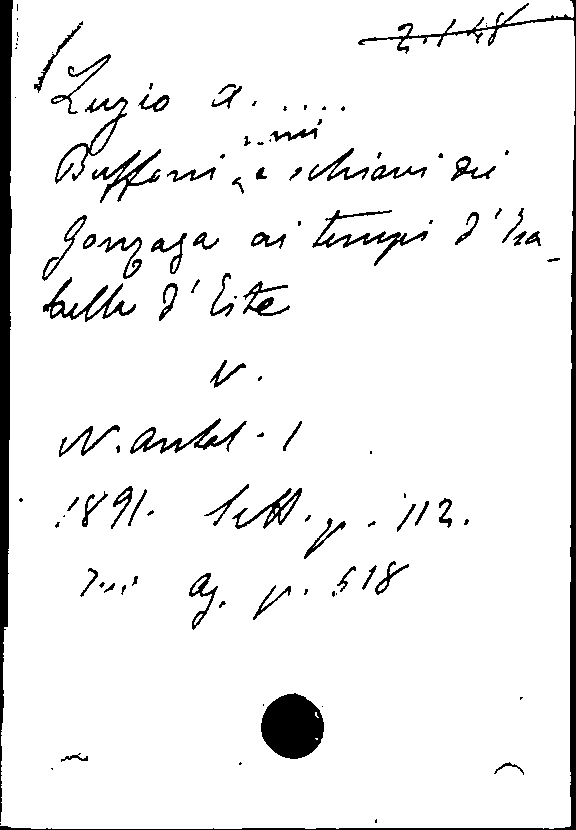 2.148
Luzio A. ....
nani
Buffoni, e schiavi dei
Gonzaga ai tempi d'Isa-
bella d'Este
V.
N. Antol. 1
1891. Sett. p. 112.
Ag. p. 518